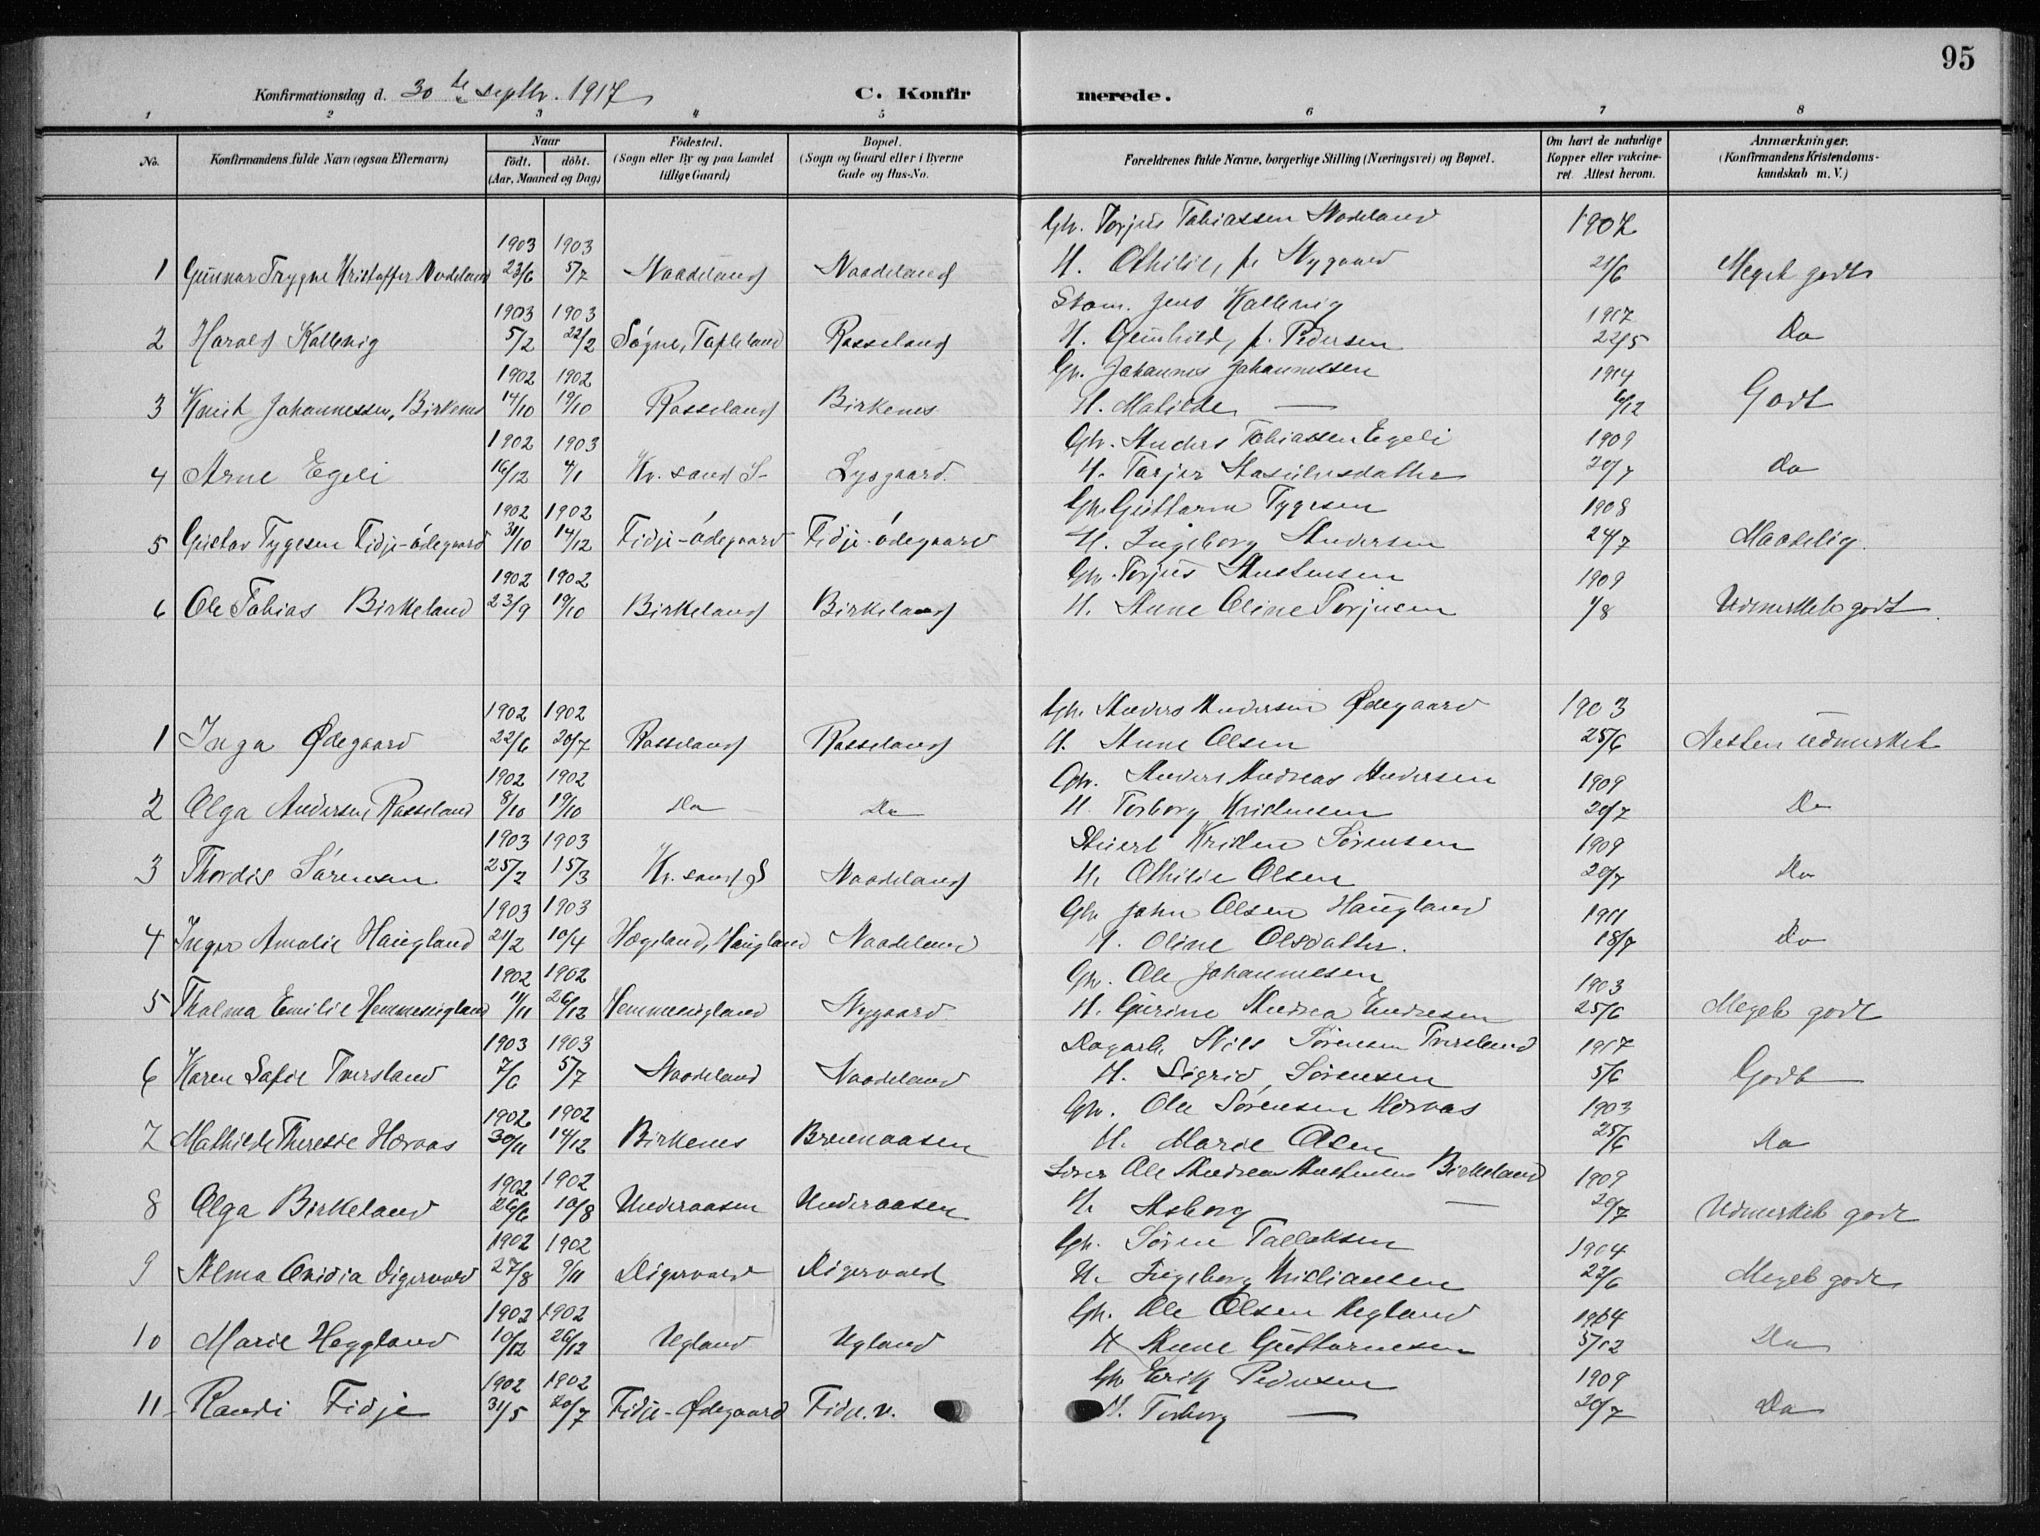 95
Konfirmationsdag d. 30te septbr. 1917
C. Konfirmerede.
1 2 3 4 5 6 7 8
No. Konfirmandens fulde Navn (ogsaa Efternavn) Naar födt. döbt. (Aar, Maaned og Dag) Födested. (Sogn eller By og paa Landet tillige Gaard) Bopæl. (Sogn og Gaard eller i Byerne Gade og Hus-No. Forældrenes fulde Navne, borgerlige Stilling (Næringsvei) og Bopæl. Om havt de naturlige Kopper eller vakcineret. Attest herom. Anmærkninger. (Konfirmandens Kristendomskundskab m. V.)
1903 1903 Gbr. Torjus Tobiassen Nodeland 1907
1 Gunnar Trygve Kristoffer Nodeland 23/6 5/7 Naadeland Naadeland H. Othilie, f. Nygaard 21/6 Meget godt
1903 1903 Skom. Jens Kallevig 1917
2 Harald Kallevig 5/2 22/2 Søgne, Tapleland Rosseland H. Gunhild, f. Pedersen 22/5 Do
1902 1902 Gb. Johannes Johannessen 1914
3 Knut Johannessen, Birkenes 14/10 19/10 Rosseland Birkenes H. Matilde — 6/12 Godt
1902 1903 Gbr. Anders Tobiassen Egeli 1909
4 Arne Egeli 16/12 4/1 Kr. sand S- Lysgaard. H. Tarjer Aasulvsdatter 20/7 Do
1902 1902 Gbr. Guttorm Tygesen 1908
5 Gustav Tygesen Fidje-ódegaard 31/10 14/12 Fidje-ódegaard Fidje-ódegaard H. Ingeborg Andersen 24/7 Maadelig
1902 1902 Gbr. Torjus Austensen 1909
6 Ole Tobias Birkeland 23/9 19/10 Birkeland Birkeland H. Anne Oline Torjusen 1/8 Udmerket godt
1902 1902 Gbr. Anders Andersen Ødegaard 1903
1 Inga Ødegaard 22/6 20/7 Rosseland Rosseland H. Anne Olsen 25/6 Nesten udmerket
1902 1902 Gbr. Anders Andreas Andersen 1909
2 Olga Andersen, Rosseland 8/10 19/10 Do Do H. Torborg Kristensen 20/7 Do
1903 1903 Stuert Kristen Sørensen 1909
3 Thordis Sørensen 25/2 15/3 Kr. sand S Naadeland H. Othilie Olsen 20/7 Do
1903 1903 Gbr John Olsen Haugland 1911
4 Inger Amalie Haugland 21/2 10/4 Hægeland, Haugland Naadeland H. Oline Olsdatter. 18/7 Do
1902 1902 Gbr. Ole Johannesen 1903
5 Thalma Emilie Hemmesigland 11/11 26/12 Hemmesigland Nygaard H. Gurine Andrea Endresen 25/6 Meget godt
1903 1903 Dagarb. Nils Sørensen Tversland 1917
6 Karen Sofie Tversland 7/6 5/7 Naadeland Naadeland H. Sigrid Sørensen 5/6 Godt
1902 1902 Gbr. Ole Sørensen Horvas 1903
7 Mathilde Therese Horvas 30/11 14/12 Birkenes Breivaasen H. Marie Olsen 25/6 Do
1902 1902 Ole Andreas Austensen Birkeland 1909
8 Olga Birkeland 26/6 10/8 Underaasen Underaasen H. Asborg — 20/7 Udmerket godt
1902 1902 Gbr. Søren Tallaksen 1904
9 Alma Ovidia Digervold 27/8 9/11 Digervold Digervold H. Ingeborg Kristiansen 22/6 Meget godt
1902 1902 Gbr. Ole Olsen Ugland 1914
10 Marie Heggland 10/12 26/12 Ugland Ugland H Anne Guttormsen 5/12 Do
1902 1902 Gbr Erik Pedersen 1909
11 Randi Fidje 31/5 20/7 Fidje-Ødegaard Fidje. v. H. Torborg — 20/7 Do